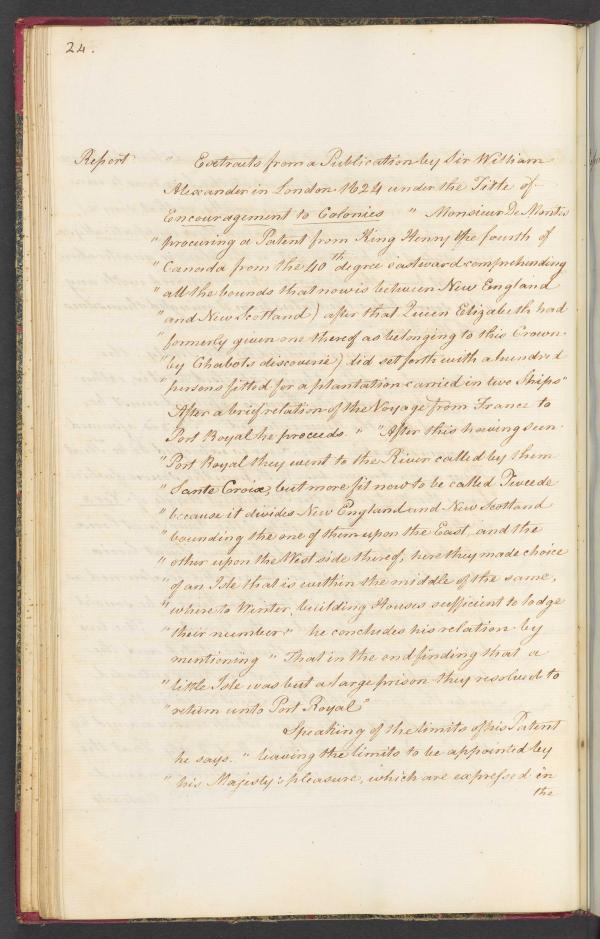 24.
Report " Extracts from a Publication by Sir William
Alexander in London 1624 under the Title of
Encouragement to Colonies " Monsieur De Montes
" procuring a Patent from King Henry the fourth of
" Canada from the 40th degree eastward comprehending
" all the bounds that now is between New England
" and New Scotland) after that Queen Elizabeth had
" formerly given one thereof as belonging to this Crown
" by Chabots discoverie) did set forth with a hundred
" persons fitted for a plantation carried in two Ships"
After a brief relation of the Voyage from France to
Port Royal he proceeds. " "After this having seen
" Port Royal they went to the River called by them
" Sante Croix, but more fit now to be called Tweede
" because it divides New England and New Scotland
" bounding the one of them upon the East, and the
" other upon the West side thereof, here they made choice
" of an Isle that is within the middle of the same,
" where to Winter, building Houses sufficient to lodge
" their number" he concludes his relation by
mentioning " That in the end finding that a
" little Isle was but a large prison they resolved to
" return unto Port Royal"
Speaking of the limits of his Patent
he says. " leaving the limits to be appointed by
" his Majesty's pleasure, which are expressed in
the